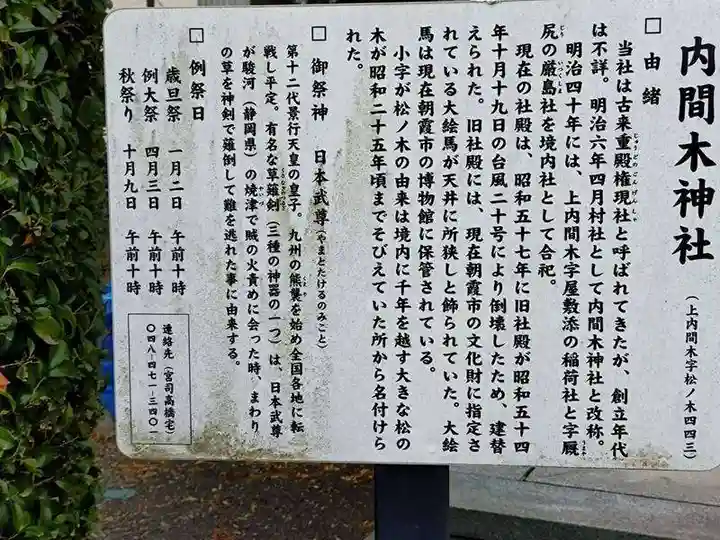 内間木神社
(上内間木字松ノ木四四三)
□ 由緒
当社は古来重殿権現社と呼ばれてきたが、創立年代
じゅうどのごんげんしゃ
は不詳。明治六年四月村社として内間木神社と改称。
明治四十年には、上内間木字屋敷添の稲荷社と字厩
うまや
尻の厳島社を境内社として合祀。
じり いつくしましゃ
現在の社殿は、昭和五十七年に旧社殿が昭和五十四
年十月十九日の台風二十号により倒壊したため、建替
えられた。旧社殿には、現在朝霞市の文化財に指定さ
れている大絵馬が天井に所狭しと飾られていた。大絵
馬は現在朝霞市の博物館に保管されている。
小字が松ノ木の由来は境内に千年を越す大きな松の
木が昭和二十五年頃までそびえていた所から名付けら
れた。
□ 御祭神 日本武尊(やまとたけるのみこと)
第十二代景行天皇の皇子。九州の熊襲を始め全国各地に転
くまそ
戦し平定。有名な草薙剣(三種の神器の一つ)は、日本武尊
くさなぎのつるぎ
が駿河(静岡県)の焼津で賊の火責めに会った時、まわり
やいづ
の草を神剣で薙倒して難を逃れた事に由来する。
□ 例祭日
歳旦祭 一月二日 午前十時
例大祭 四月三日 午前十時
秋祭り 十月九日 午前十時
連絡先(宮司高橋宅)
〇四八-四七一-三四〇一